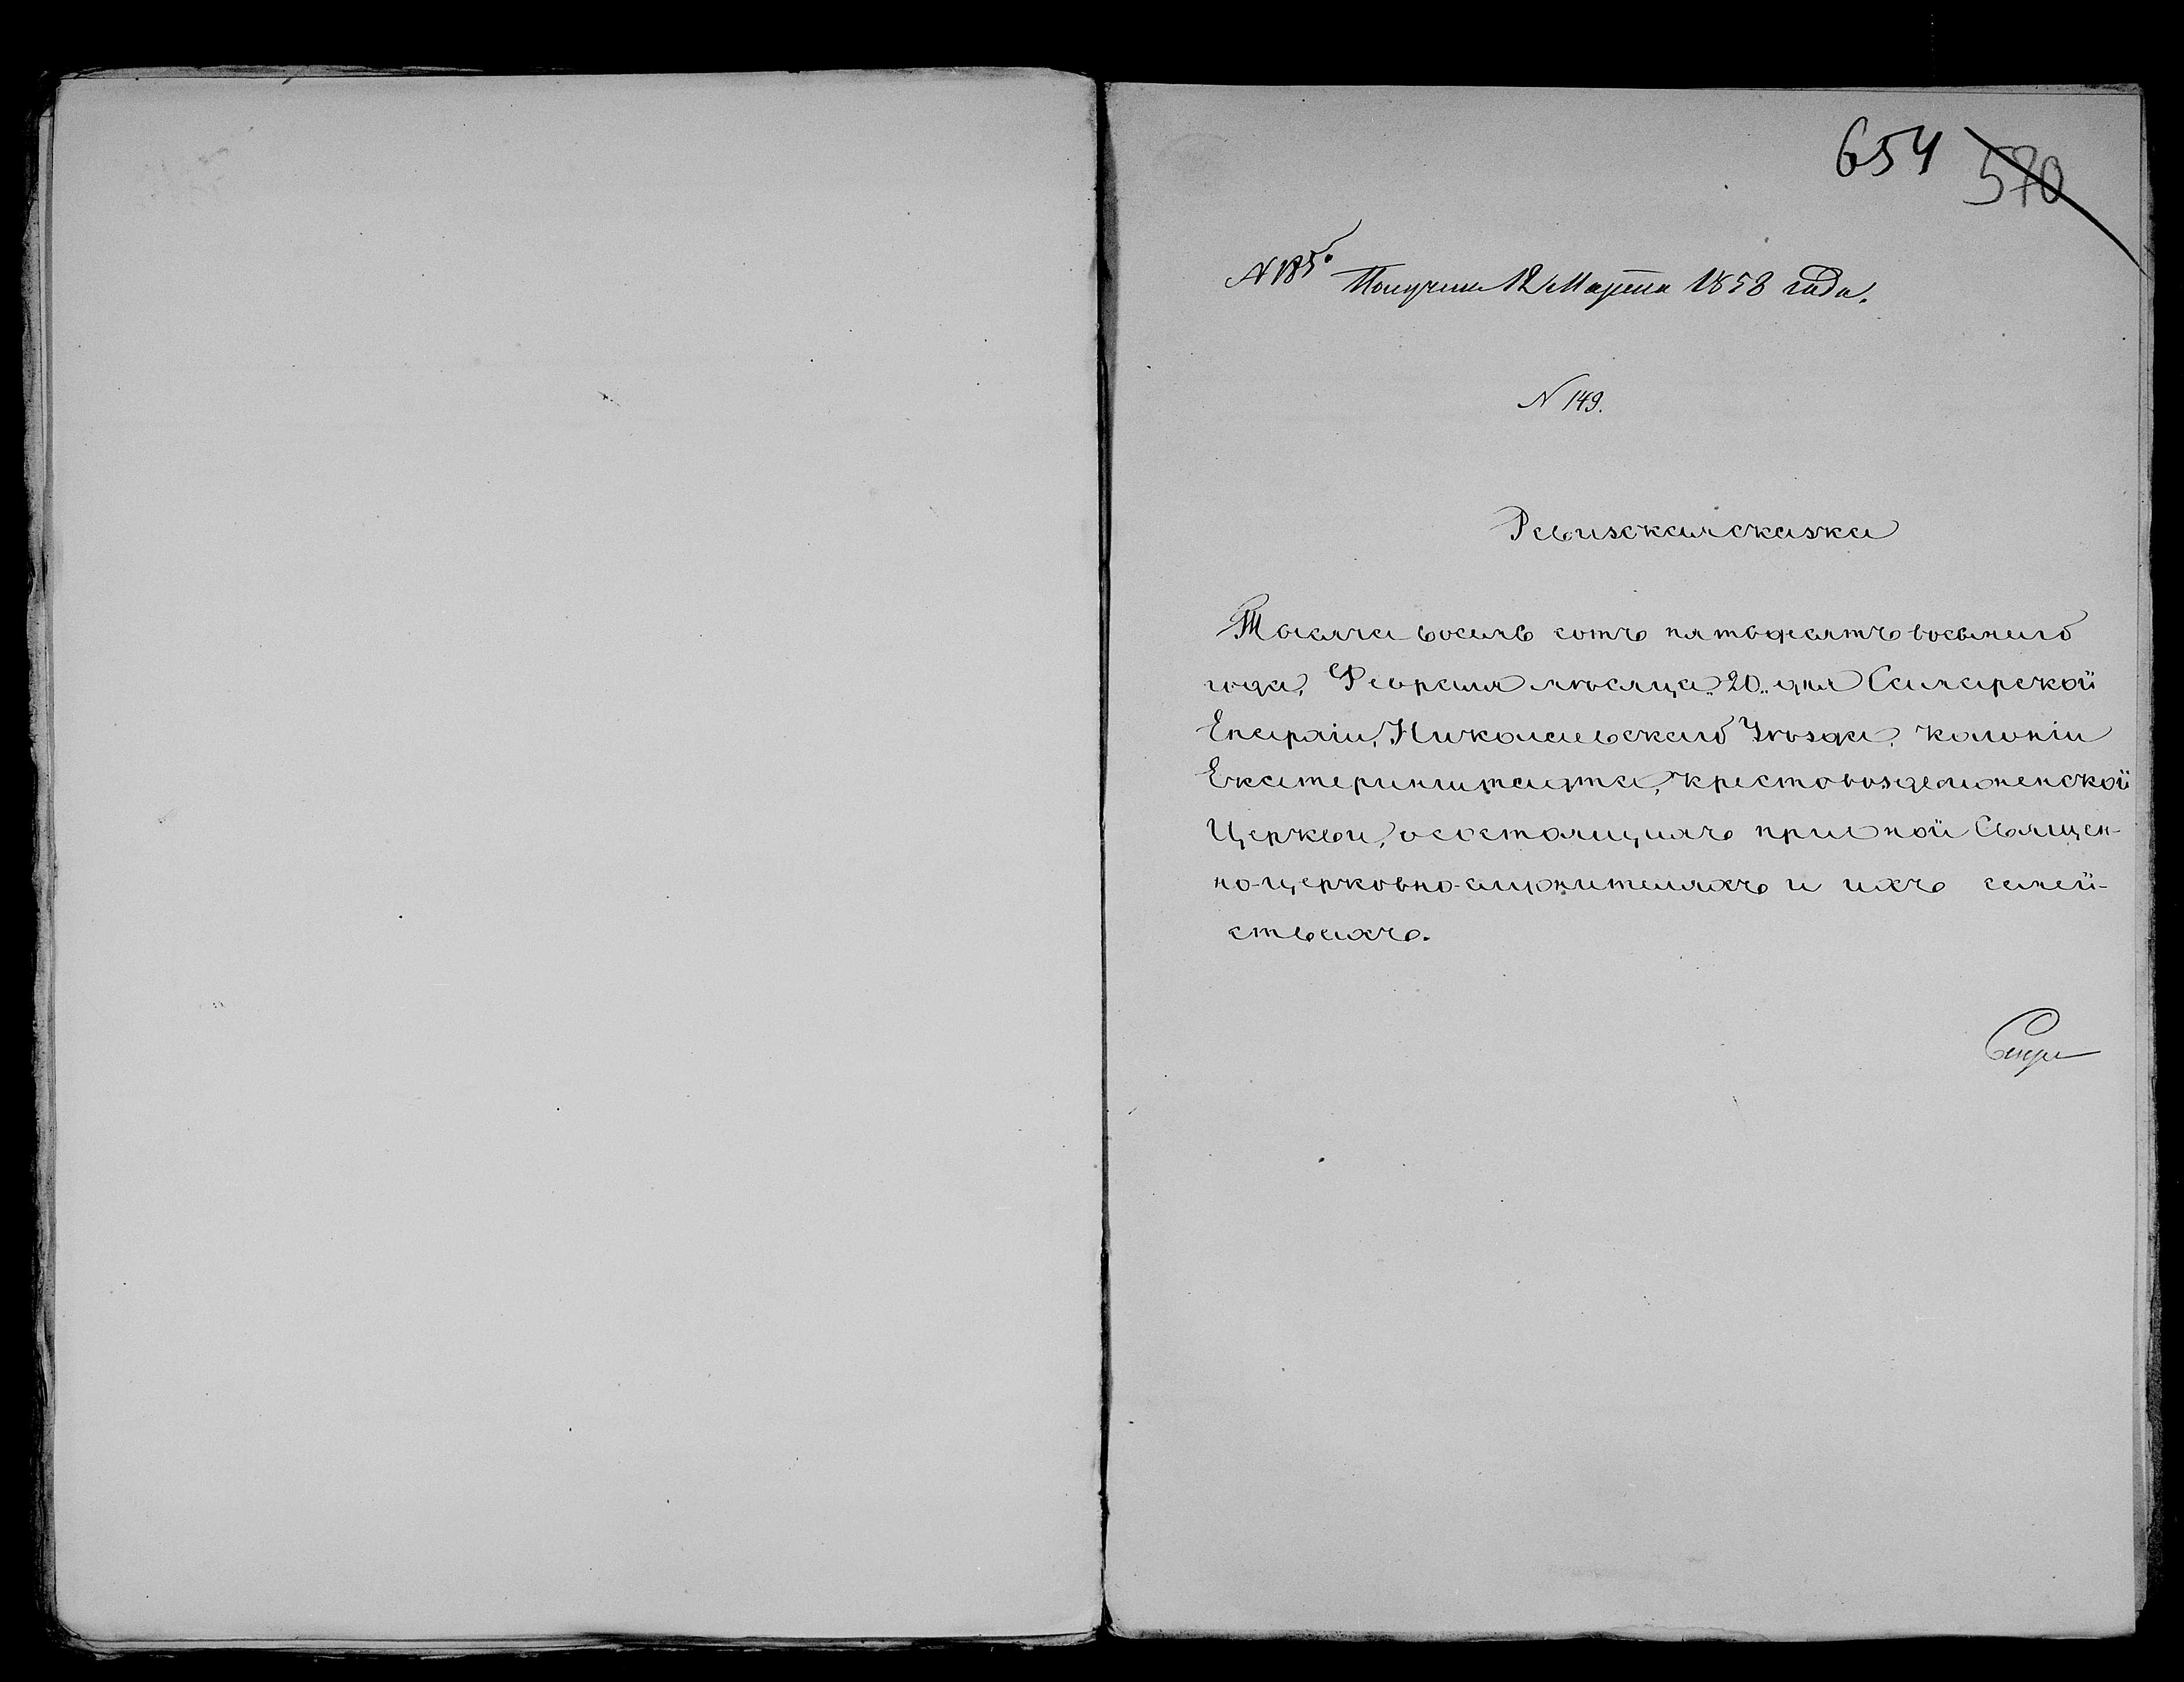 654 570
N 185. Получена 12 Марта 1858 года.
N 149.
Ревизская сказка
Тысяча восемь сотъ пятьдесятъ восьмаго
года, Февраля мѣсяца „20„ дня Самарской
Епархіи, Николаевскаго Уѣзда, колоніи
Екатериненштадта, Крестовоздвиженской
Церкви, о состоящихъ при оной Священ-
но-церковно-служителяхъ и ихъ семей-
ствахъ.